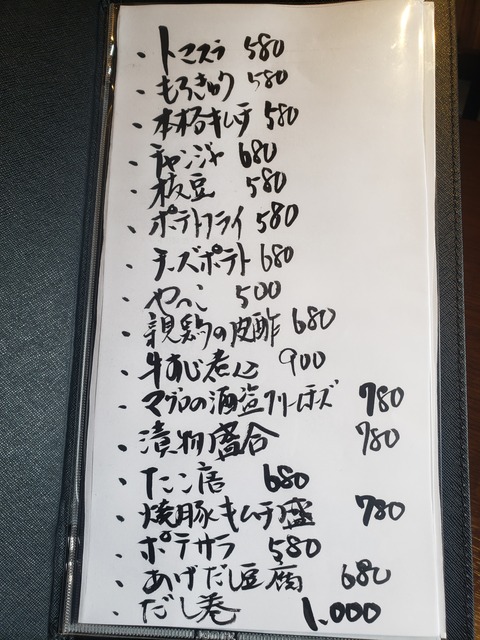 ・トマスラ 580
・もろきゅう 580
・本格キムチ 580
・チャンジャ 680
・枝豆 580
・ポテトフライ 580
・チーズポテト 680
・やっこ 500
・親鶏の皮酢 680
・牛すじ煮込 900
・マグロの酒盗クリームチーズ 780
・漬物盛合 780
・たこ唐 680
・焼豚キムチ盛 780
・ポテサラ 580
・あげだし豆腐 680
・だし巻 1,000